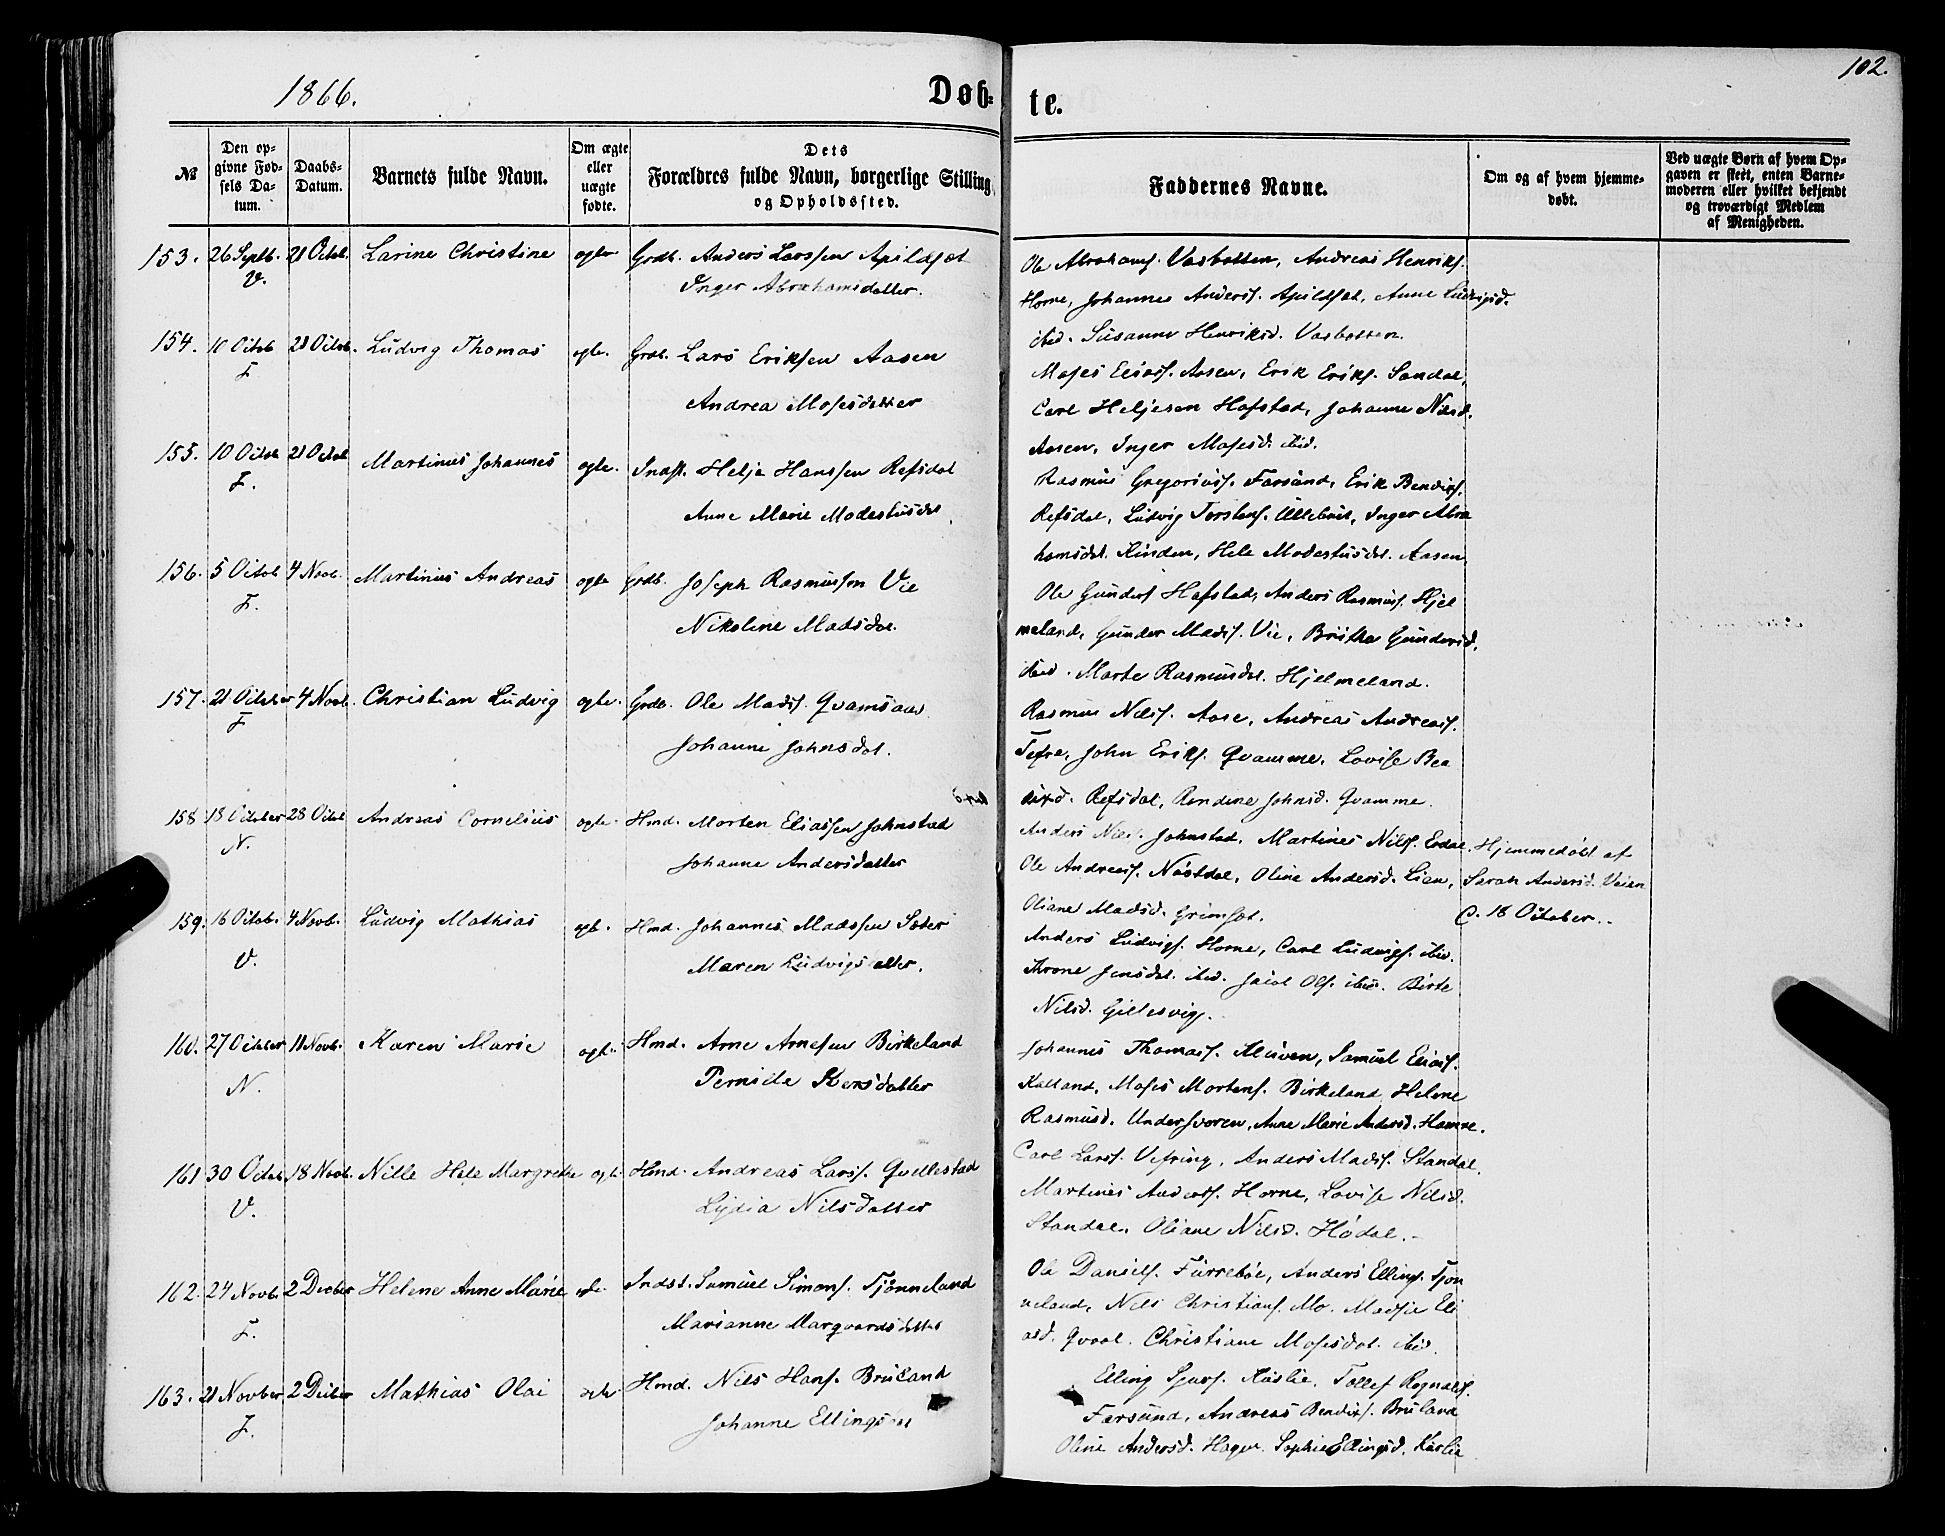 1866.
Døb-
te.
102.
№
Den opgivne Fødsels Datum.
Daabs-Datum.
Barnets fulde Navn.
Om ægte eller uægte fødte.
Dets Forældres fulde Navn, borgerlige Stilling og Opholdssted.
Faddernes Navne.
Om og af hvem hjemmedøbt.
Ved uægte Børn af hvem Opgaven er skeet, enten Barnemoderen eller hvilket bekjendt og troværdigt Medlem af Menigheden.
153. 26 Septb. 21 Octob. Larine Christine ægte Grdb. Anders Larssen Apildset
V. Inger Abrahamsdatter.
Ole Abrahams. Vasbotten, Andreas Henriks.
Horne, Johannes Anders. Apildset, Anne Ludvigsd.
ibid. Susanne Henriksd. Vasbotten.
154. 10 Octob 21 Octob. Ludvig Thomas ægte. Grdb. Lars Eriksen Aasen
F. Andrea Mosesdatter
Moses Eliass. Aasen, Erik Eriks. Sandal,
Carl Heljesen Hafstad, Johanne Nilsd.
Aasen, Inger Mosesd. ibid.
155. 10 Octob 21 Octob Martinus Johannes ægte. Indst. Helje Hanssen Refsdal
F. Anne Marie Modestusdat.
Rasmus Gregoriuss. Farsund, Erik Bendixs.
Refsdal, Ludvig Torstens. Ullebust, Inger Abra
hamsdat. Kinden, Hele Modestusdat. Aasen
156. 5 Octob 4 Novb. Martinus Andreas ægte Grdb. Joseph Rasmussen Vie
F. Nikoline Madsdat.
Ole Gunders Hafstad, Anders Rasmus. Hjel
meland, Gunder Mads. Vie, Brithe Gundersd.
ibid. Marte Rasmusdat. Hjelmeland.
157. 21 October 4 Novb. Christian Ludvig ægte. Grdb. Ole Mads. Qvamsaas
F Johanne Johnsdat.
Rasmus Nils. Aase, Andreas Andreass.
Tefre, John Eriks. Qvamme, Lovise Ben
dixd. Refsdal, Rendine Johnsd. Qvamme.
158 13 October 28 Octob Andreas Cornelius ægte. Hmd. Morten Eliassen Johnstad
N. Johanne Andersdatter
Anders Nils. Johnstad, Martines Nils. Erdal,
Ole Andreass. Nøstdal, Oline Andersd. Lien,
Oliane Madsd. Grimset.
Hjemmedøbt af
Sarah Andersd. Veien
d. 18 October.
159. 16 Octob. 4 Novb. Ludvig Mathias ægt. Hmd. Johannes Madssen Sæter
V. Maren Ludvigsdatter.
Anders Ludvigs. Horne, Carl Ludvigs. ibid.
Throne Jensdat. ibid. Jacob Ols. ibid. Birte
Nilsd. Gjellesvig.
160. 27 October 11 Novb. Karen Marie ægt. Hmd. Arne Arnesen Birkeland
N. Pernille Larsdatter
Johannes Thomass. Kleiven, Samuel Eliass.
Kalland, Moses Mortens. Birkeland, Helene
Rasmusd. Undersvoren, Anne Marie Andersd. Hamre.
161 30 Octob 18 Novb. Nille Hele Margrete ægt. Hmd. Andreas Lars. Qvellestad
V. Lydia Nilsdatter
Carl Lars. Vefring, Anders Mads. Standal,
Martines Anders. Horne, Lovise Nilsd.
Standal, Oliane Nilsd. Hødal.
162. 24 Novb. 2 Decber Helene Anne Marie ægte. Indst. Samuel Simons. Tjønneland
F. Marianne Margvardsdatter
Ole Daniels. Furrebøe, Anders Ellings. Tjøn
neland, Nils Christians. Mo. Madsie Eli
asd. Qvaal. Christiane Mosesdat. ibid.
163. 21 Novber 2 Decber Mathias Olai ægte Hmd. Nils Hans. Bruland
F. Johanne Ellingsdat
Elling Sjurs. Kaslie, Tollef Rognalds.
Farsund, Andreas Bendixs. Bruland
Oline Andersd. Hagen. Sophie Ellingsd. Kaslie